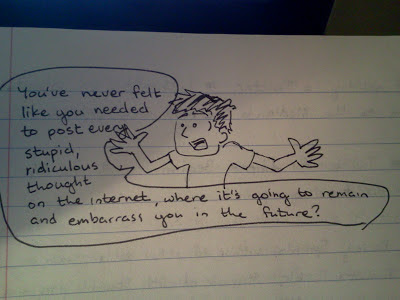 You've never felt
like you needed
to post every
stupid,
ridiculous
thought
on the internet, where it's going to remain
and embarrass you in the future?